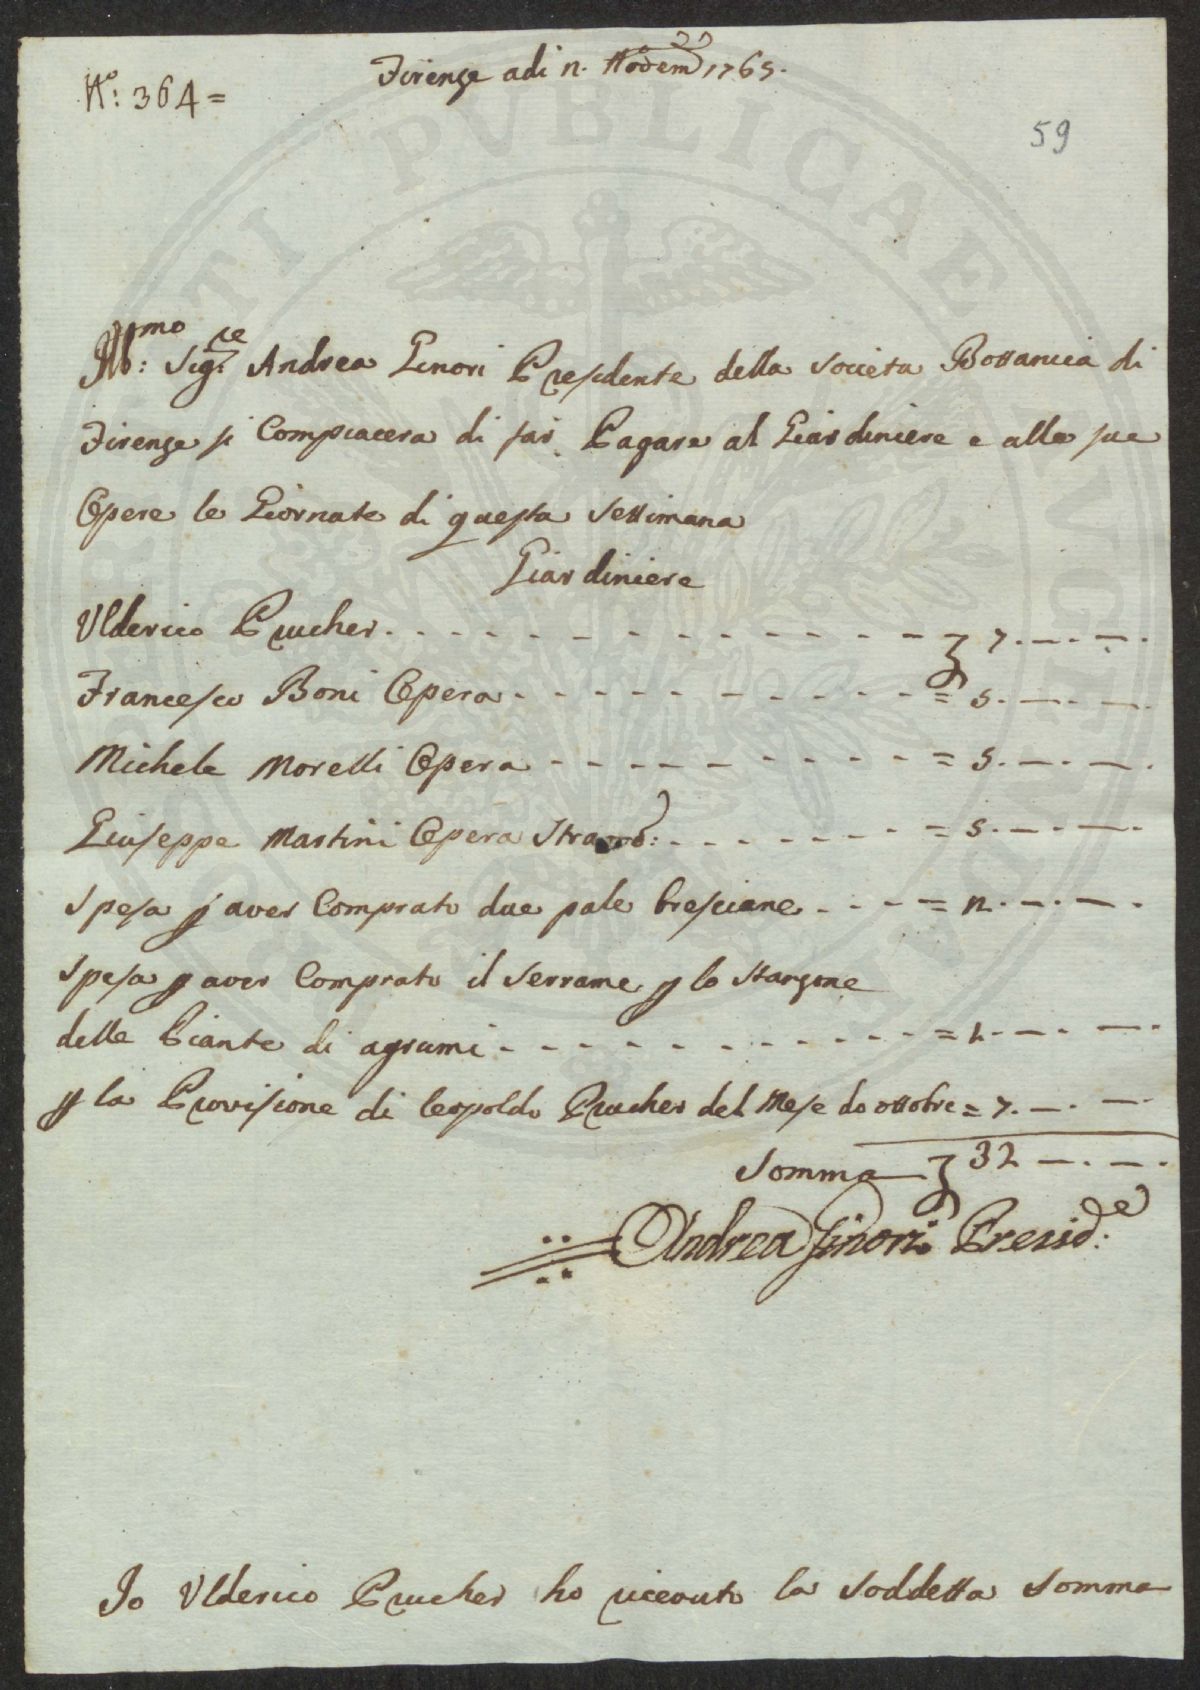 N.º: 364 =
Firenze adi n. Novem 1765.
59
Ill:mo Sig:re Andrea Ginori Presidente della Societa Bottanica di
Firenze si Compiacera di far Pagare al Giardiniere e alle sue
Opere le Giornate di questa Settimana
Giardiniere
Ulderico Prucher - - - 7. —. —.
Francesco Boni Opera - - - = 5. —. —.
Michele Morelli Opera - - - = 5. —. —.
Giuseppe Martini Opera - - - = 5. —. —.
Spesa p aver Comprato due pale bresciane - - - = —. —.
Spesa p aver Comprato il Serrame p lo Stanzone
delle Piante di agrumi - - - = —. —.
p la Provisione di Leopoldo Prucher del Mese do ottobre = 7. —. —.
Somma 32 —. —.
Andrea Ginori Presid:e
Io Ulderico Prucher ho ricevuto la Soddetta Somma